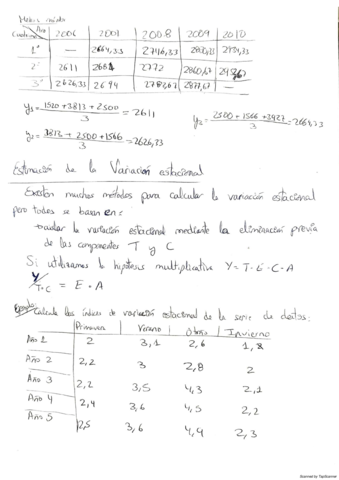 Media móvil
Año 2006 2007 2008 2009 2010
1º — 2664,33 2746,33
2º 2611 2684 2772 2860,67
3º 2626,33 2694 2877,67 —
y₃ = 1520 + 3813 + 2500 / 3 = 2611
y₂ = 3813 + 2500 + 1566 / 3 = 2626,33
y₂ = 2500 + 1566 + 3927 / 3 = 2664,33
Estimación de la Variación estacional
Existen muchos métodos para calcular la variación estacional
pero todos se basan en:
la variación estacional mediante la eliminación previa
de las componentes T y C
Si utilizamos la hipótesis multiplicativa Y = T · E · C · A
Y / T · C = E · A
Ejemplo: Calcula los índices de variación estacional de la serie de datos:
Primavera Verano Otoño Invierno
Año 1 2 3,1 2,6 1,8
Año 2 2,2 3 2,8 2
Año 3 2,2 3,5 4,3 2,1
Año 4 2,4 3,6 4,5 2,2
Año 5 2,5 3,6 4,4 2,3
Scanned by TapScanner